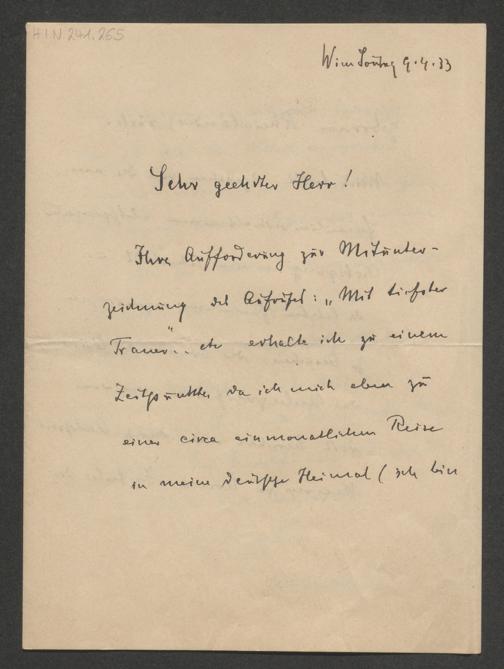 HIN 241.265
Wien Sonntag 9.4.33
Sehr geehrter Herr!
Ihre Aufforderung zur Mitunter-
zeichnung des Aufrufes: „Mit tiefster
Trauer".. etc erhalte ich zu einem
Zeitpunkte, da ich mich eben zu
einer circa einmonatlichen Reise
in meine deutsche Heimat (ich bin